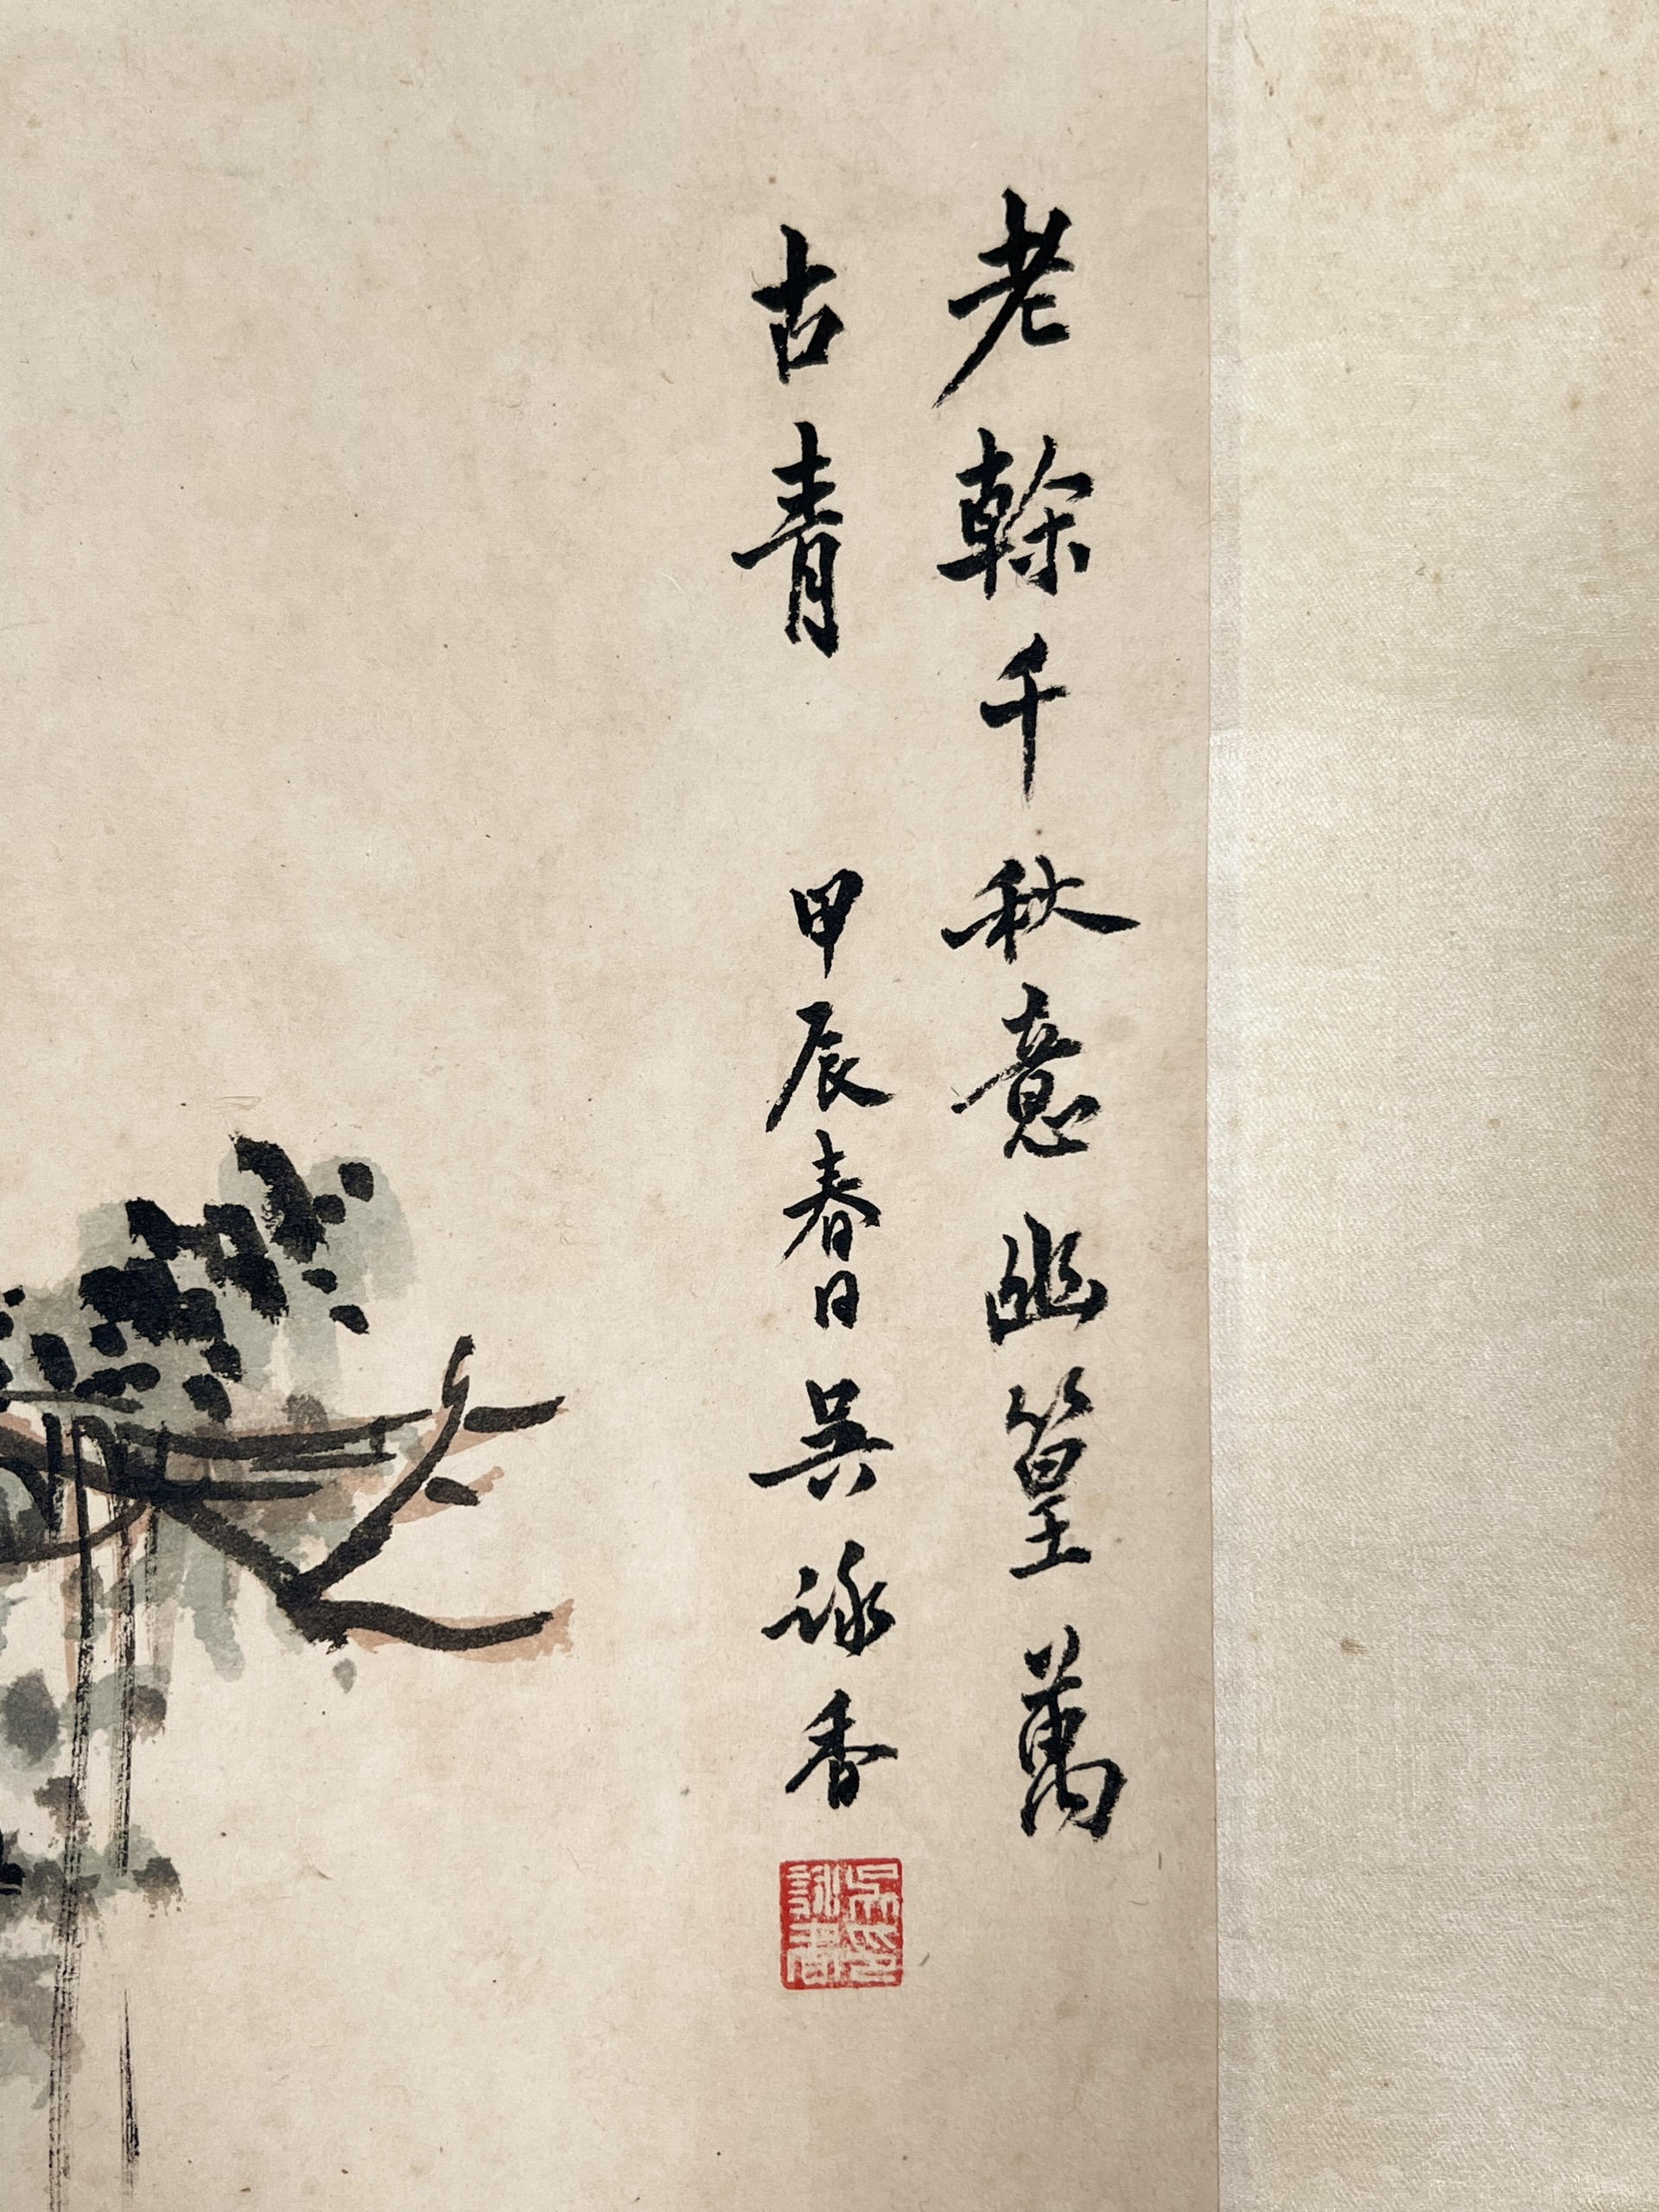 老榦千秋意幽篁萬
古青 甲辰春日吳詠香
吳詠香印